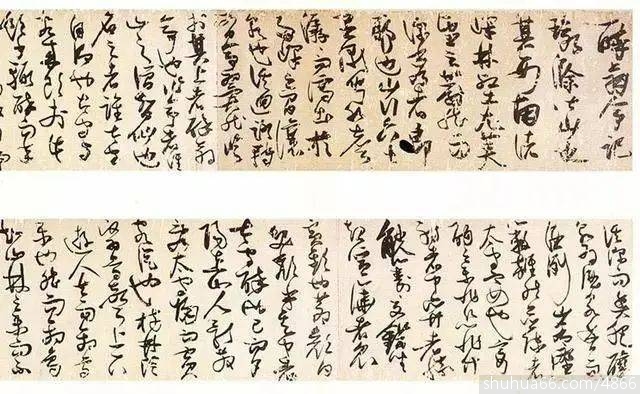 醉翁亭記
環滁皆山也
其西南諸
峰林壑尤美
望之蔚然而
深秀者琅
琊也山行六七
里漸聞水聲
潺潺而瀉出於
兩峰之間者釀
泉也峰回路轉
有亭翼然臨
於其上者醉翁
亭也作亭者誰
山之僧智仙也
名之者誰太守
自謂也太守與
客來飲於此
飲少輒醉而年
溪深而魚肥釀
泉為酒泉香而
酒洌山肴野
蔌雜然而前陳者
太守宴也宴
酣之樂非絲非竹
射者中弈者勝
觥籌交錯坐
起而諠譁者衆
賓歡也蒼顏白
髮頹乎其中者
太守醉也已而夕
陽在山人影散
亂太守歸而賓
客從也樹林陰
翳鳴聲上下
遊人去而禽鳥
樂也然而禽鳥
知山林之樂而不
shuhua66.com/4866